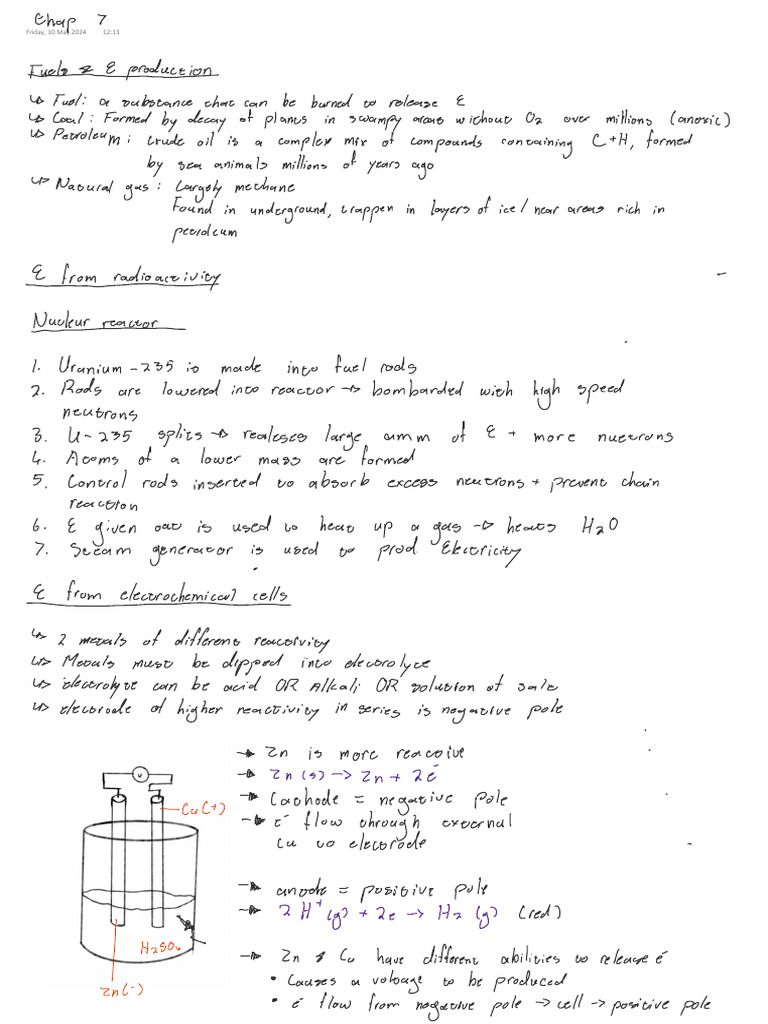 Chap 7
Friday, 10 May 2024 12:13
Fuels & E production
↳ Fuel: a substance that can be burned to release E
↳ Coal: Formed by decay of planes in swampy areas without O2 over millions (anoxic)
↳ Petroleum: crude oil is a complex mix of compounds containing C+H, formed
by sea animals millions of years ago
↳ Natural gas: Largely methane
Found in underground, trappen in layers of ice/near areas rich in
petroleum
E from radioactivity
Nuclear reactor
1. Uranium-235 is made into fuel rods
2. Rods are lowered into reactor → bombarded with high speed
neutrons
3. U-235 splits → realeses large amm of E + more nuetrons
4. Atoms of a lower mass are formed
5. Control rods inserted to absorb excess neutrons + prevent chain
reaction
6. E given out is used to heat up a gas → heats H2O
7. Steam generator is used to prod Electricity
E from electrochemical cells
↳ 2 metals of different reactivity
↳ Metals must be dipped into electrolyte
↳ electrolyte can be acid OR Alkali OR solution of salt
↳ electrode of higher reactivity in series is negative pole
→ Zn is more reactive
→ Zn(s) → Zn + 2e⁻
→ Cathode = negative pole
→ e⁻ flow through external
Cu to electrode
→ anode = positive pole
→ 2H⁺(g) + 2e → H2(g) (red)
→ Zn & Cu have different abilities to release e⁻
• Causes a voltage to be produced
• e⁻ flow from negative pole → cell → positive pole
V
Cu(+)
H2SO4
Zn(-)